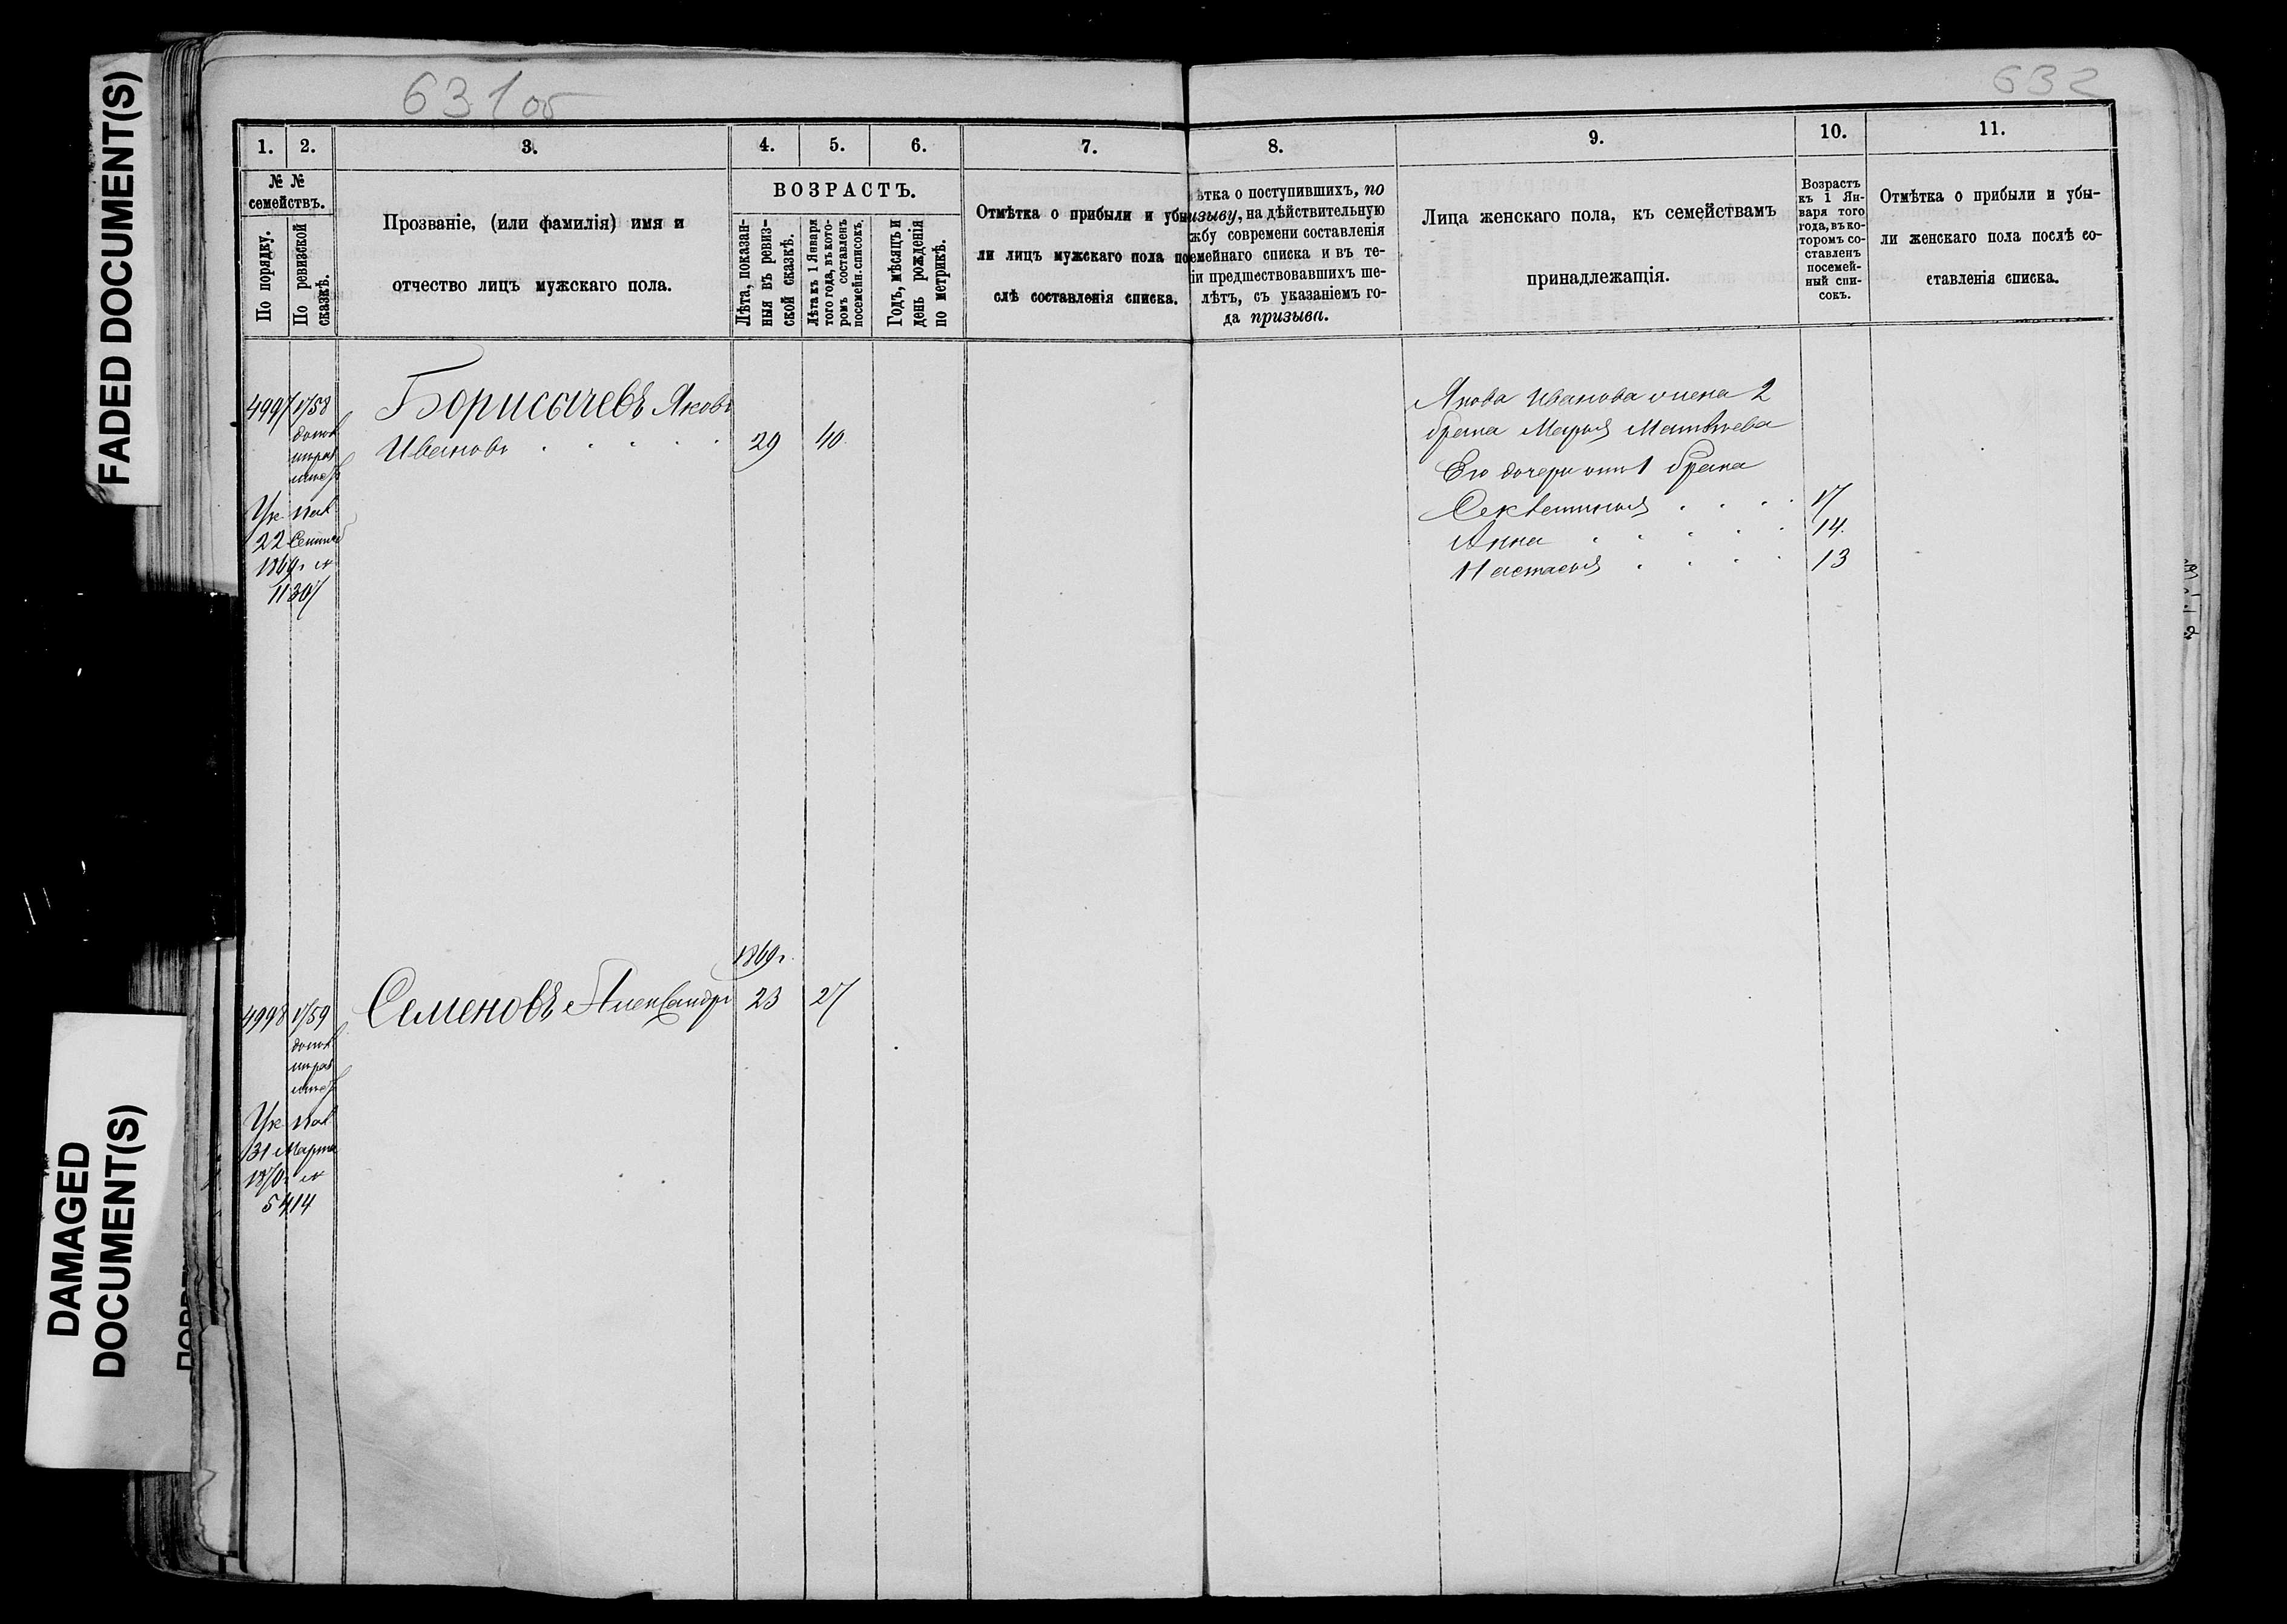 FADED DOCUMENT(S)
DAMAGED
DOCUMENT(S)
631об
632
1. 2. 3. 4. 5. 6. 7. 8. 9. 10. 11.
№ №
семействъ.
По порядку.
По ревизской
сказкѣ.
Прозваніе, (или фамилія) имя и
отчество лицъ мужскаго пола.
ВОЗРАСТЪ.
Лѣта, показан-
ныя въ ревиз-
ской сказкѣ.
Лѣта къ 1 Января
того года, въ кото-
ромъ составленъ
посемейн. списокъ.
Годъ, мѣсяцъ и
день рожденія
по метрикѣ.
Отмѣтка о прибыли и убы
ли лицъ мужскаго пола по
слѣ составленія списка.
ѣтка о поступившихъ, по
изыву, на дѣйствительную
жбу современи составленія
емейнаго списка и въ те-
іи предшествовавшихъ ше-
лѣтъ, съ указаніемъ го-
да призыва.
Лица женскаго пола, къ семействамъ
принадлежащія.
Возрастъ
къ 1 Ян-
варя того
года, въ ко-
торомъ со-
ставленъ
посемей-
ный спи-
сокъ.
Отмѣтка о прибыли и убы-
ли женскаго пола послѣ со-
ставленія списка.
4997 1758 Борисычевъ Яковъ
Ивановъ 29 40
Ук. Пал
22 Сентяб
1869 г. №
11307
Якова Иванова жена 2
брака Марья Матвѣева
Его дочери от 1 брака
17
Анна 14.
Настасья 13
1869 г.
4998 1759 Семеновъ Александръ 23 27
Ук. Пал
31 Марта
1870 г. №
5414